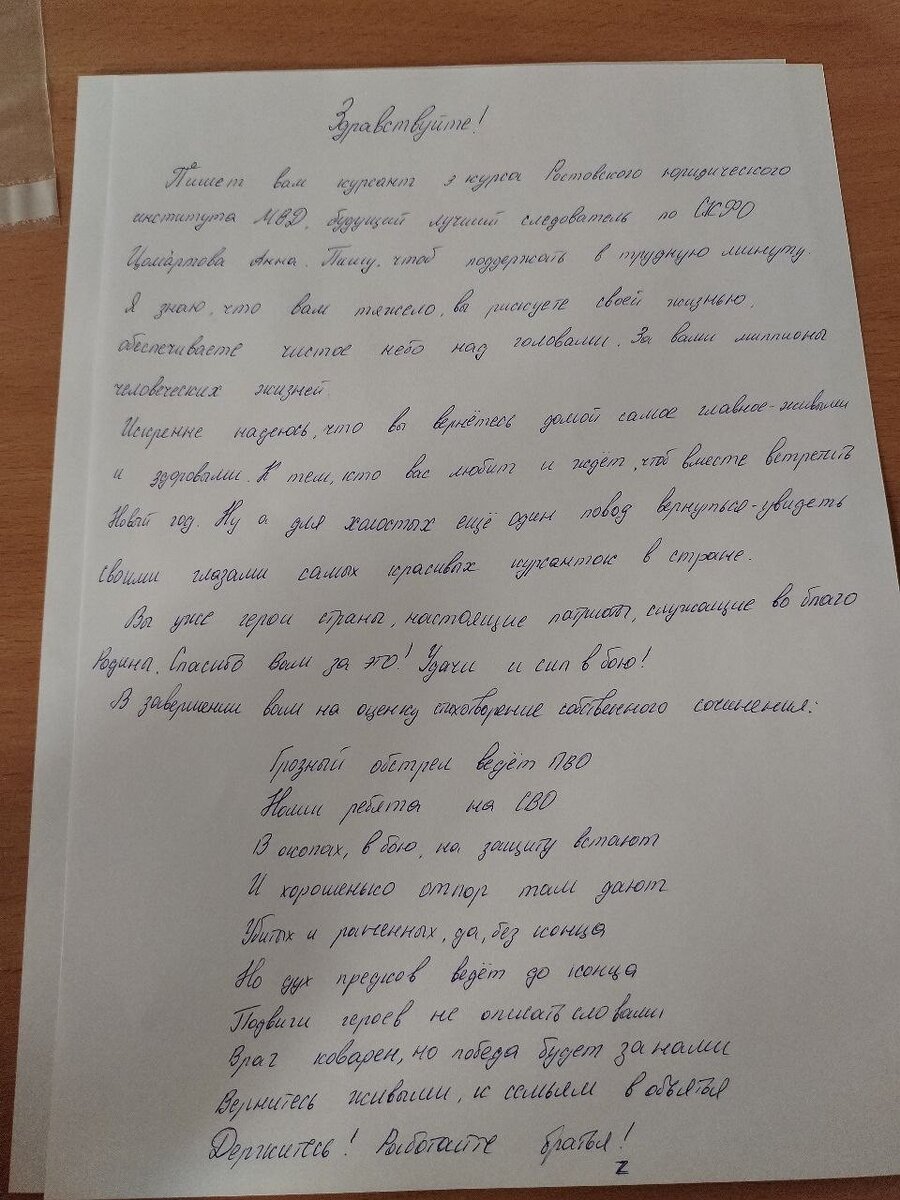 Здравствуйте!
Пишет вам курсант 3 курса Ростовского юридического
института МВД, будущий лучший следователь по СКФО
Цомартова Анна. Пишу, чтоб поддержать в трудную минуту.
Я знаю, что вам тяжело, вы рискуете своей жизнью,
обеспечиваете чистое небо над головами. За вами миллионы
человеческих жизней.
Искренне надеюсь, что вы вернётесь домой самое главное-живыми
и здоровыми. К тем, кто вас любит и ждёт, чтоб вместе встретить
Новый год. Ну а для холостых ещё один повод вернуться-увидеть
своими глазами самых красивых курсанток в стране.
Вы уже герои страны, настоящие патриоты, служащие во благо
Родины. Спасибо вам за это! Удачи и сил в бою!
В завершении вам на оценку стихотворение собственного сочинения:
Грозный обстрел ведёт ПВО
Наши ребята на СВО
В окопах, в бою, на защиту встают
И хорошенько отпор там дают
Убитых и раненных, да, без конца
Но дух предков ведёт до конца
Подвиги героев не описать словами
Враг коварен, но победа будет за нами
Вернитесь живыми, к семьям в объятья
Держитесь! Работайте братья!
Z